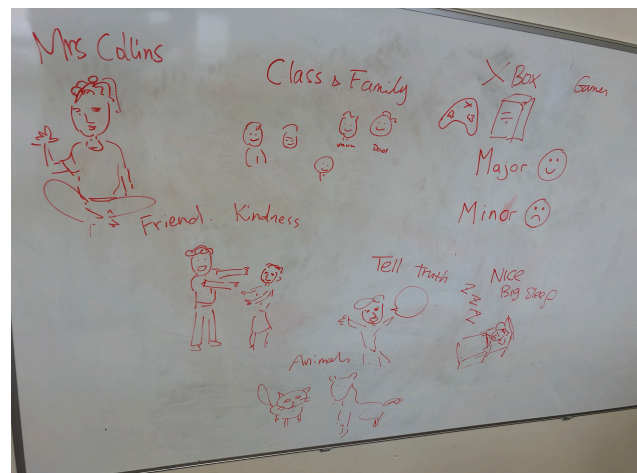 Mrs Collins
Class & Family
X Box
Games
mum
Dad
Major
Minor
Friend. Kindness
Tell truth
Nice
Big Sleep
ZZZ
Animals